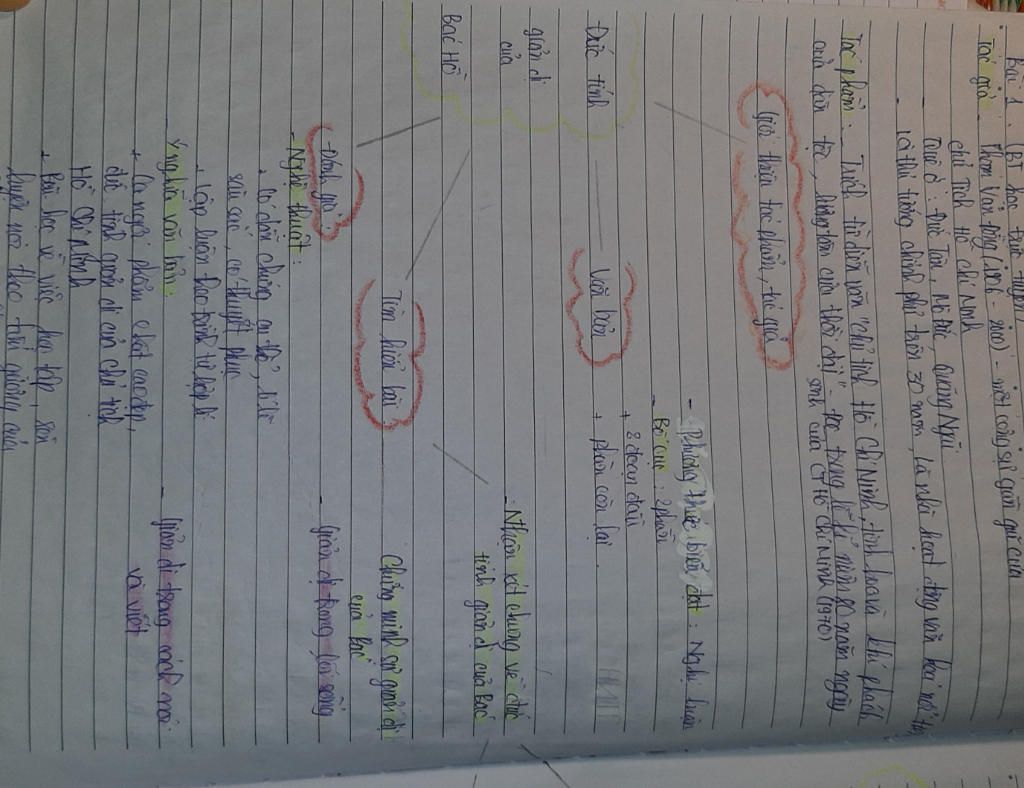 Bài 1 (BT học trực tuyến)
Tác giả - Phạm Văn Đồng (1906 - 2000) - một cộng sự gần gũi của
chủ Tịch Hồ Chí Minh
- Quê ở: Đức Tân, Mộ Đức, Quảng Ngãi
- là thủ tướng chính phủ trên 30 năm, là nhà hoạt động văn hoá nổi
Tác phẩm: - Trích từ diễn văn "chủ tịnh Hồ Chí Minh, tinh hoa và khí phách
của dân tộc, lương tâm của thời đại" - đọc trong lễ kỉ niệm 80 năm ngày
sinh của CT Hồ Chí Minh (1970)
Giới thiệu tác phẩm, tác giả
- Phương thức biểu đạt: Nghị luận
- Bố cục: 2 phần
+ 2 đoạn đầu
+ phần còn lại.
Văn bản
Đức tính
giản dị
của
Bác Hồ
- Nhận xét chung về đức
tính giản dị của Bác
Tìm hiểu bài
Chứng minh sự giản dị
của Bác
- Giản dị trong lối sống
- Giản dị trong cách nói
và viết
Đánh giá:
- Nghệ thuật:
+ Có dẫn chứng cụ thể, lí lẽ
sâu sắc, có thuyết phục
+ Lập luận theo trình tự hợp lí
Ý nghĩa văn bản:
+ Ca ngợi phẩm chất cao đẹp,
đức tính giản dị của chủ tịch
Hồ Chí Minh
+ Bài học về việc học tập, rèn
luyện noi theo tấm gương của